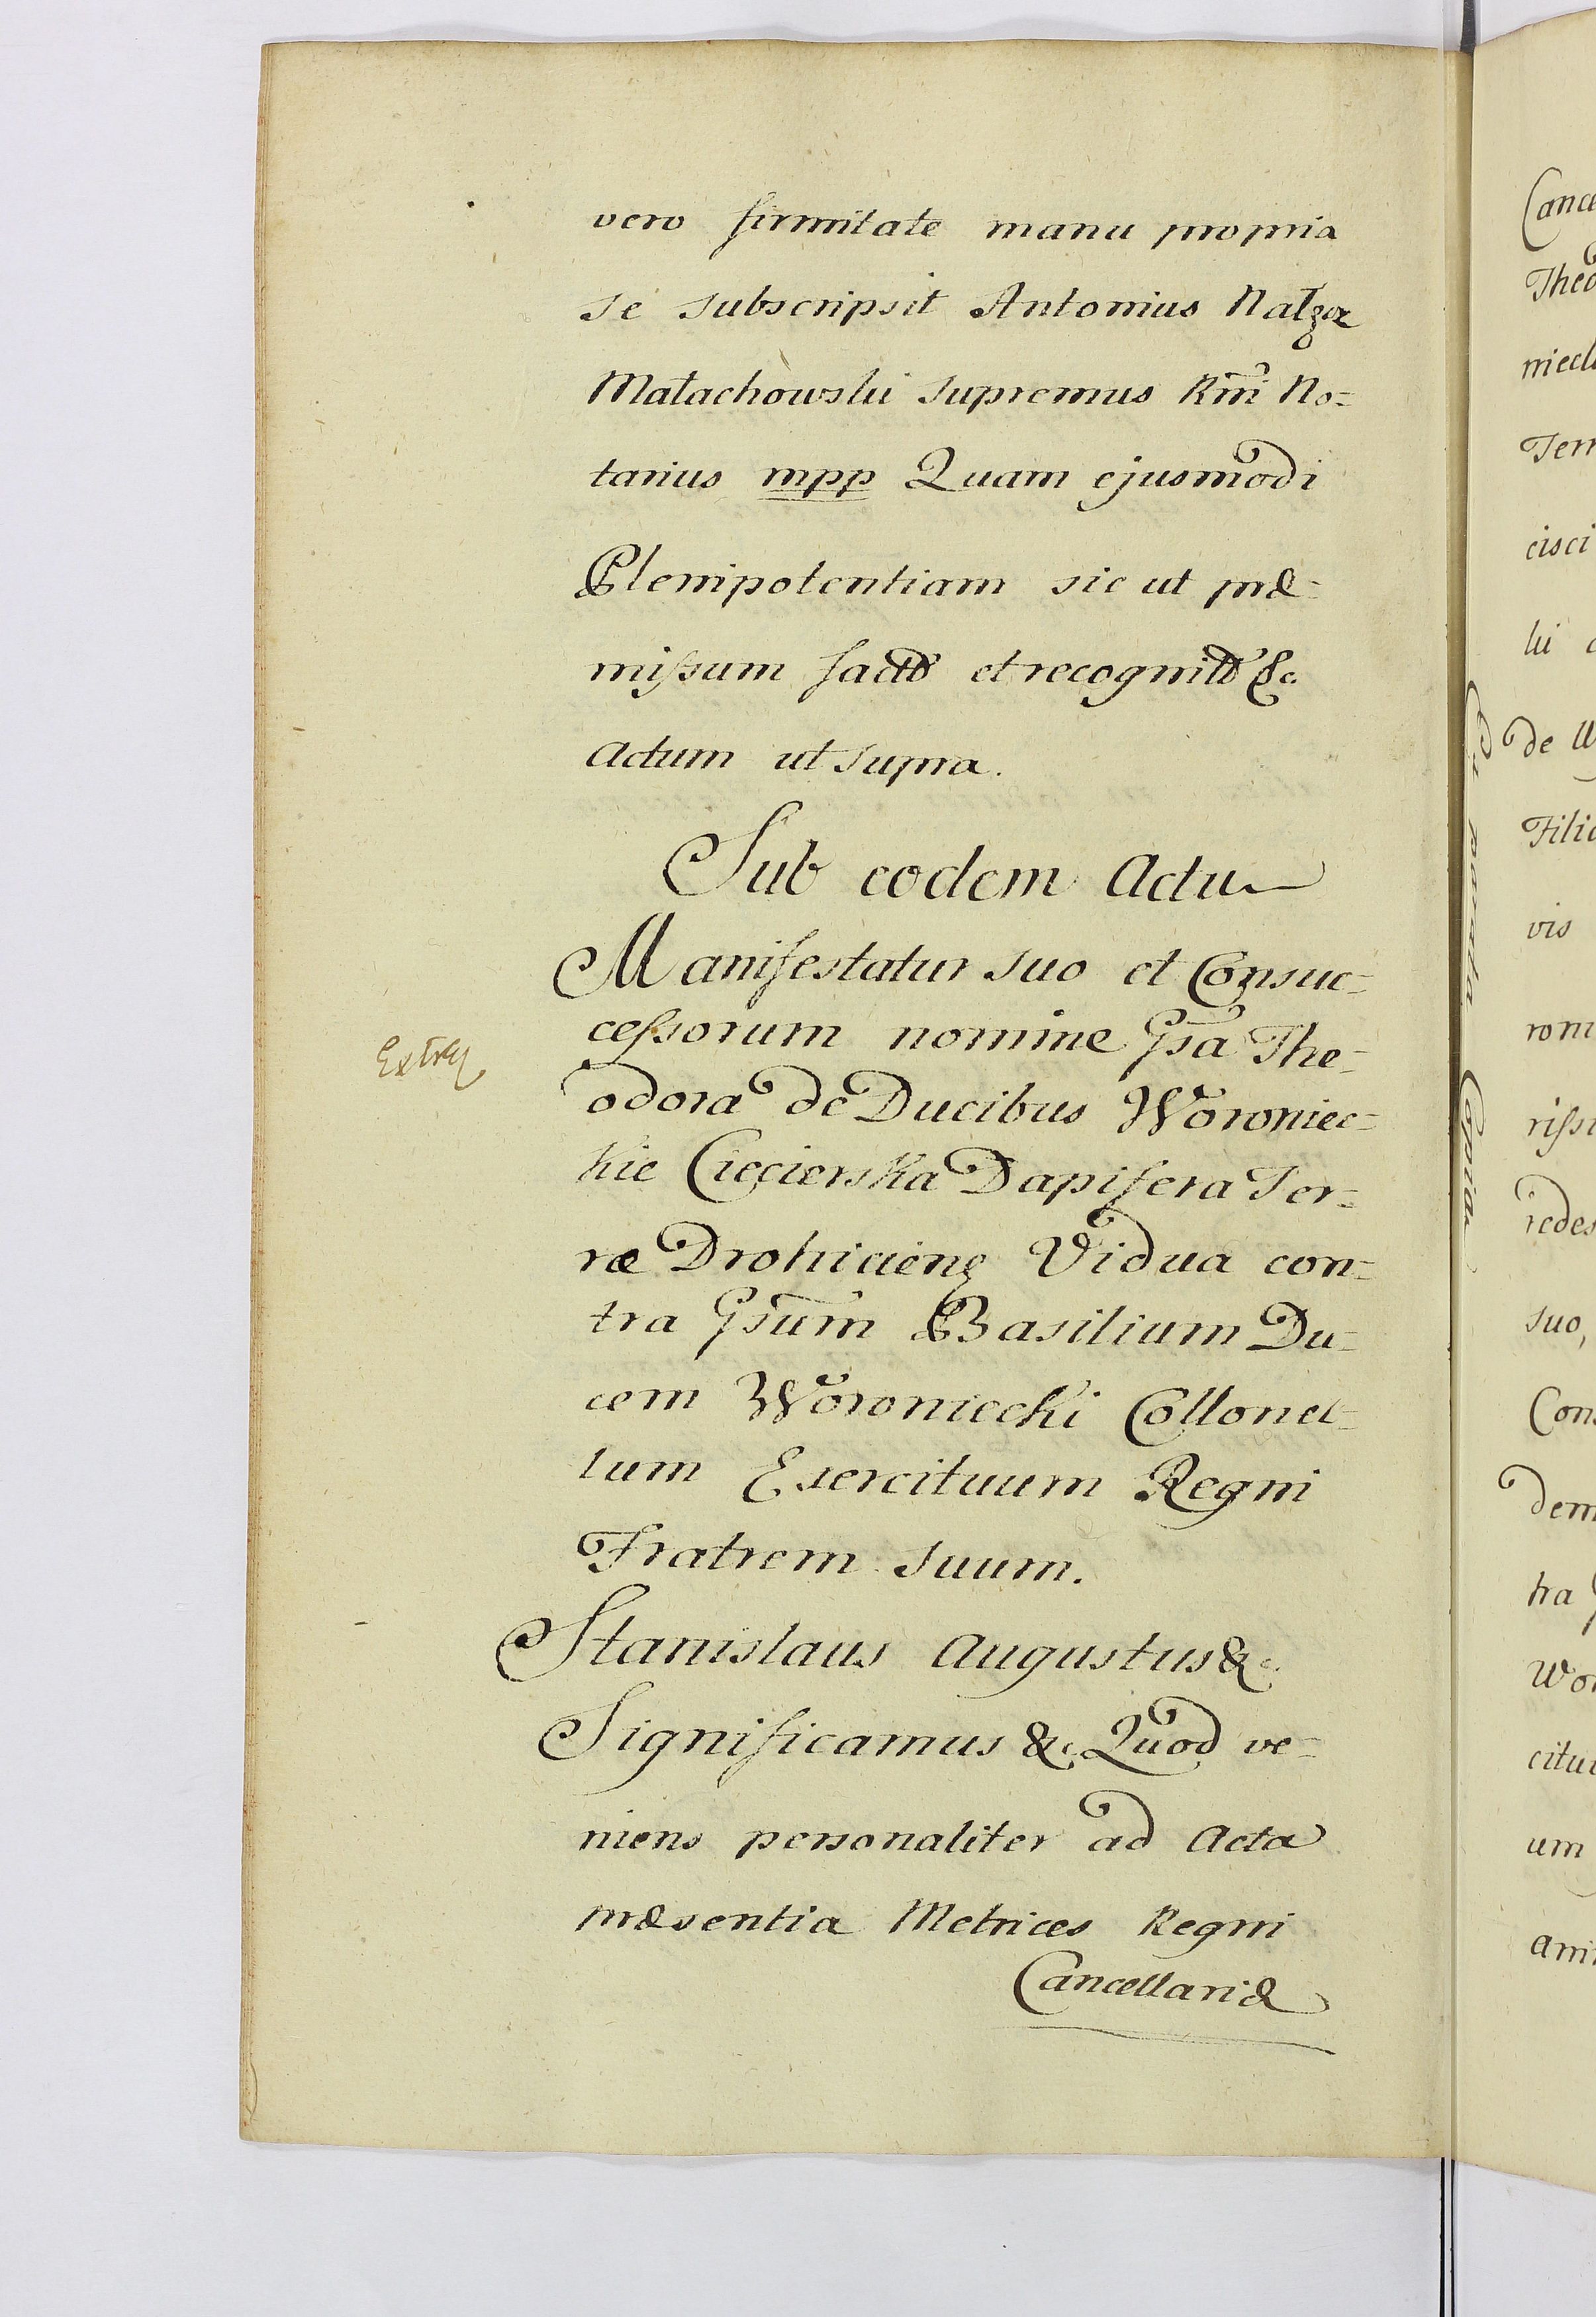 vero firmitate manu propria
se subscripsit Antonius Nałęcz
Małachowski supremus Rñi No=
tarius mpp Quam ejusmodi
Plenipotentiam sic ut præ=
missum facto et recognito &c.
Actum ut supra.
Sub eodem Actu
Manifestatur suo et Consuc=
cessorum nomine Gsa The=
odora de Ducibus Woroniec=
kie Ciecierska Dapifera Ter=
ræ Drohiciens Vidua con=
tra Gsum Basilium Du=
cem Woroniecki Collonel=
lum Exercituum Regni
Fratrem suum.
Extrey
Stanislaus Augustus &c.
Significamus &c. Quod ve=
niens personaliter ad Acta
præsentia Metrices Regni
Cancellariæ
Cance
Theo
niecki
Terr
cisci
de W
Filia
vis
roni
rissi
redes
suo,
Con
dem
tra
Wor
citu
um
Ani